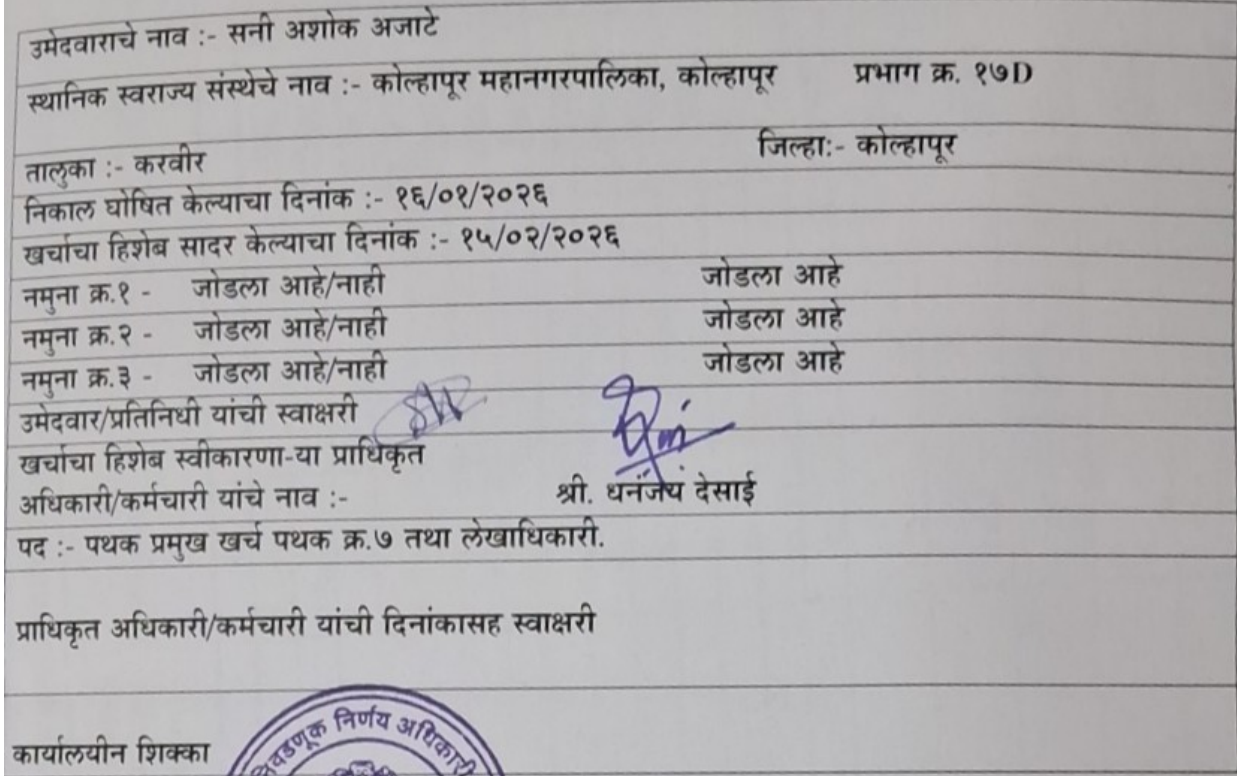 उमेदवाराचे नाव :- सनी अशोक अजाटे
स्थानिक स्वराज्य संस्थेचे नाव :- कोल्हापूर महानगरपालिका, कोल्हापूर प्रभाग क्र. १७D
तालुका :- करवीर जिल्हा:- कोल्हापूर
निकाल घोषित केल्याचा दिनांक :- १६/०१/२०२६
खर्चाचा हिशेब सादर केल्याचा दिनांक :- १५/०२/२०२६
नमुना क्र.१ - जोडला आहे/नाही जोडला आहे
नमुना क्र.२ - जोडला आहे/नाही जोडला आहे
नमुना क्र.३ - जोडला आहे/नाही जोडला आहे
उमेदवार/प्रतिनिधी यांची स्वाक्षरी
खर्चाचा हिशेब स्वीकारणा-या प्राधिकृत
अधिकारी/कर्मचारी यांचे नाव :- श्री. धनंजय देसाई
पद :- पथक प्रमुख खर्च पथक क्र.७ तथा लेखाधिकारी.
प्राधिकृत अधिकारी/कर्मचारी यांची दिनांकासह स्वाक्षरी
कार्यालयीन शिक्का
निर्णय